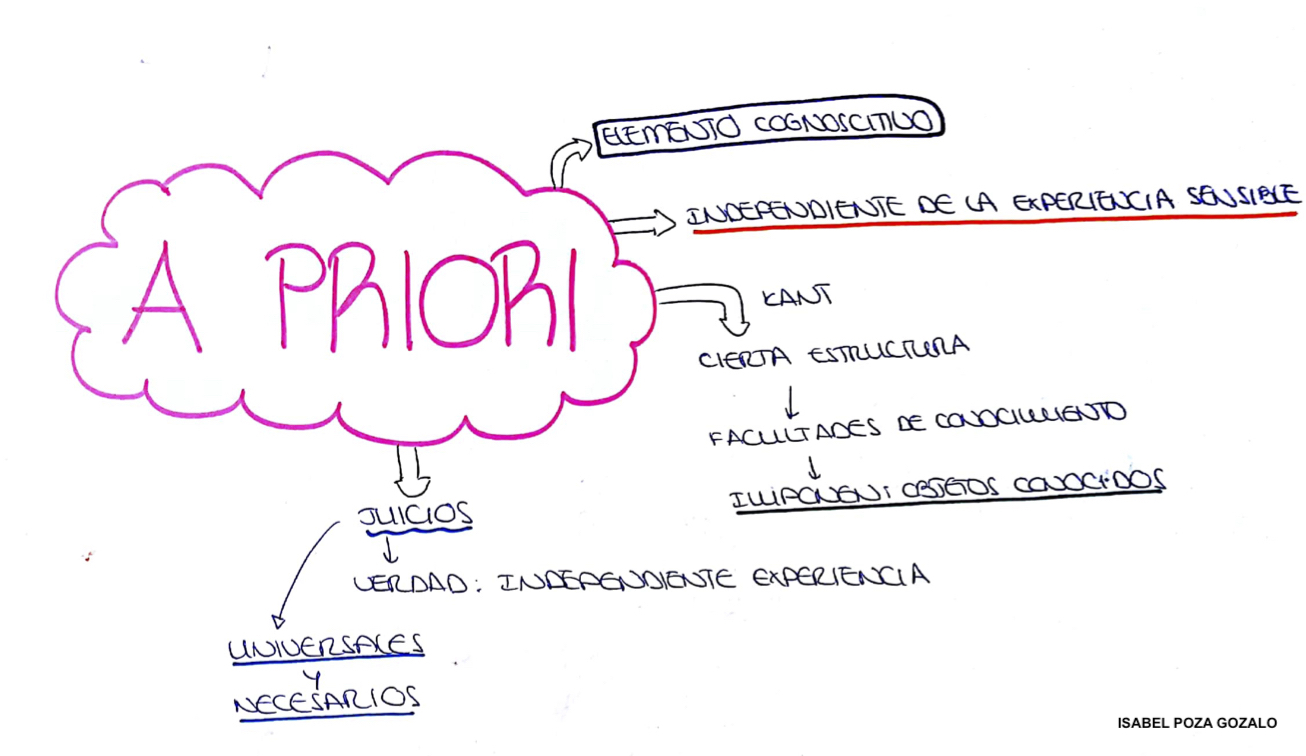 ELEMENTO COGNOSCITIVO
INDEPENDIENTE DE LA EXPERIENCIA SENSIBLE
A PRIORI
KANT
CIERTA ESTRUCTURA
FACULTADES DE CONOCIMIENTO
IMPONEN: OBJETOS CONOCIDOS
JUICIOS
VERDAD: INDEPENDIENTE EXPERIENCIA
UNIVERSALES
Y
NECESARIOS
ISABEL POZA GOZALO